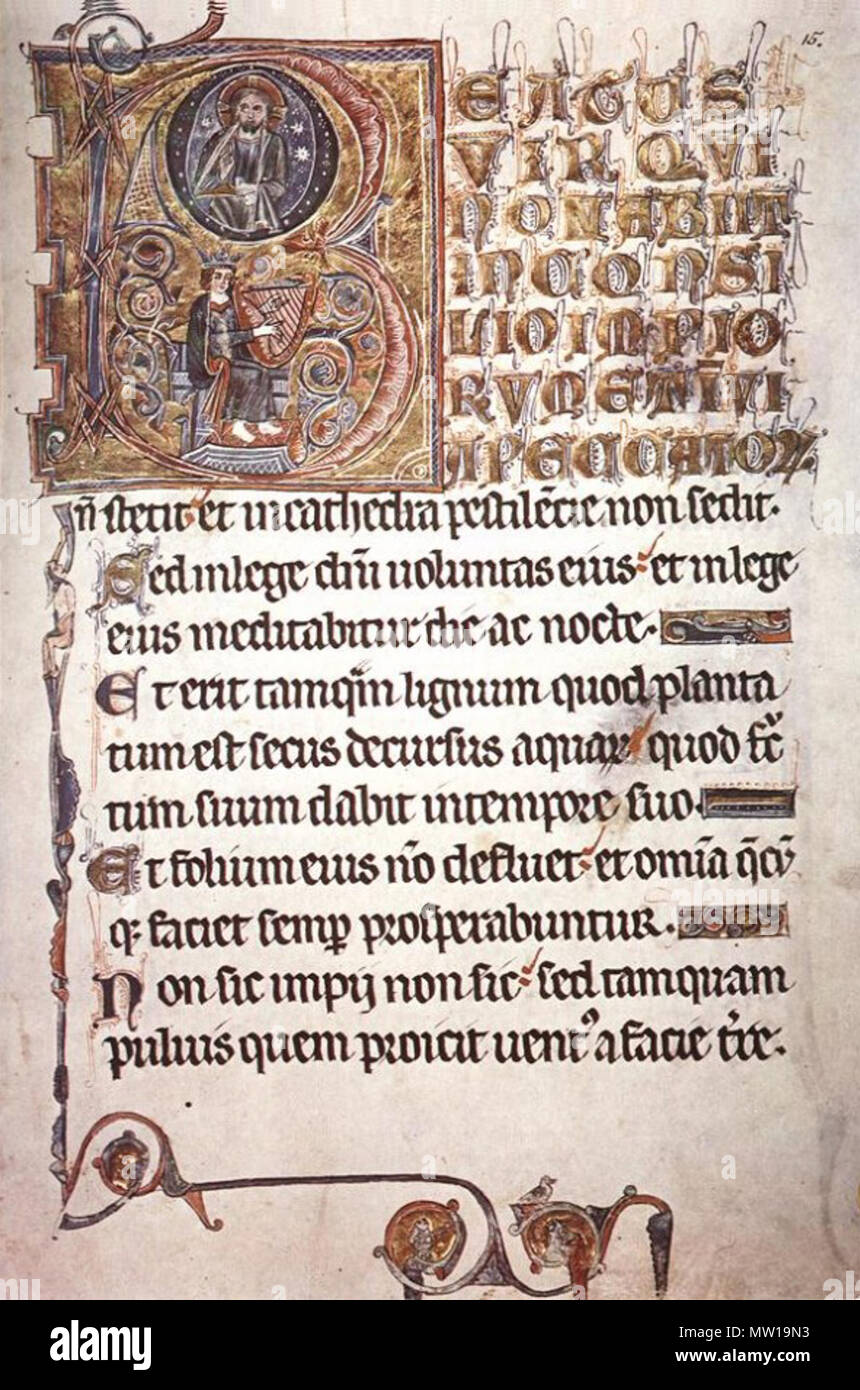 15.
BEATUS
VIR QVI
NON ABIIT
IN CONSI
LIO IMPIO
RVM ET I̅ VI
A PECCATOꝜ
n̄ stetit et in cathedra pestilēcie non sedit.
Sed in lege dn̄i uoluntas eius et in lege
eius meditabitur die ac nocte.
Et erit tamq̄m lignum quod planta
tum est secus decursus aquaꝝ quod fc̄
tum suum dabit in tempore suo.
Et folium eius nō defluet et om̄ia q̄cū
q; faciet semꝑ prosperabuntur.
Non sic impij non sic sed tamquam
puluis quem proicit uentꝰ a facie t̄re.
alamy
Image ID: MW19N3
www.alamy.com